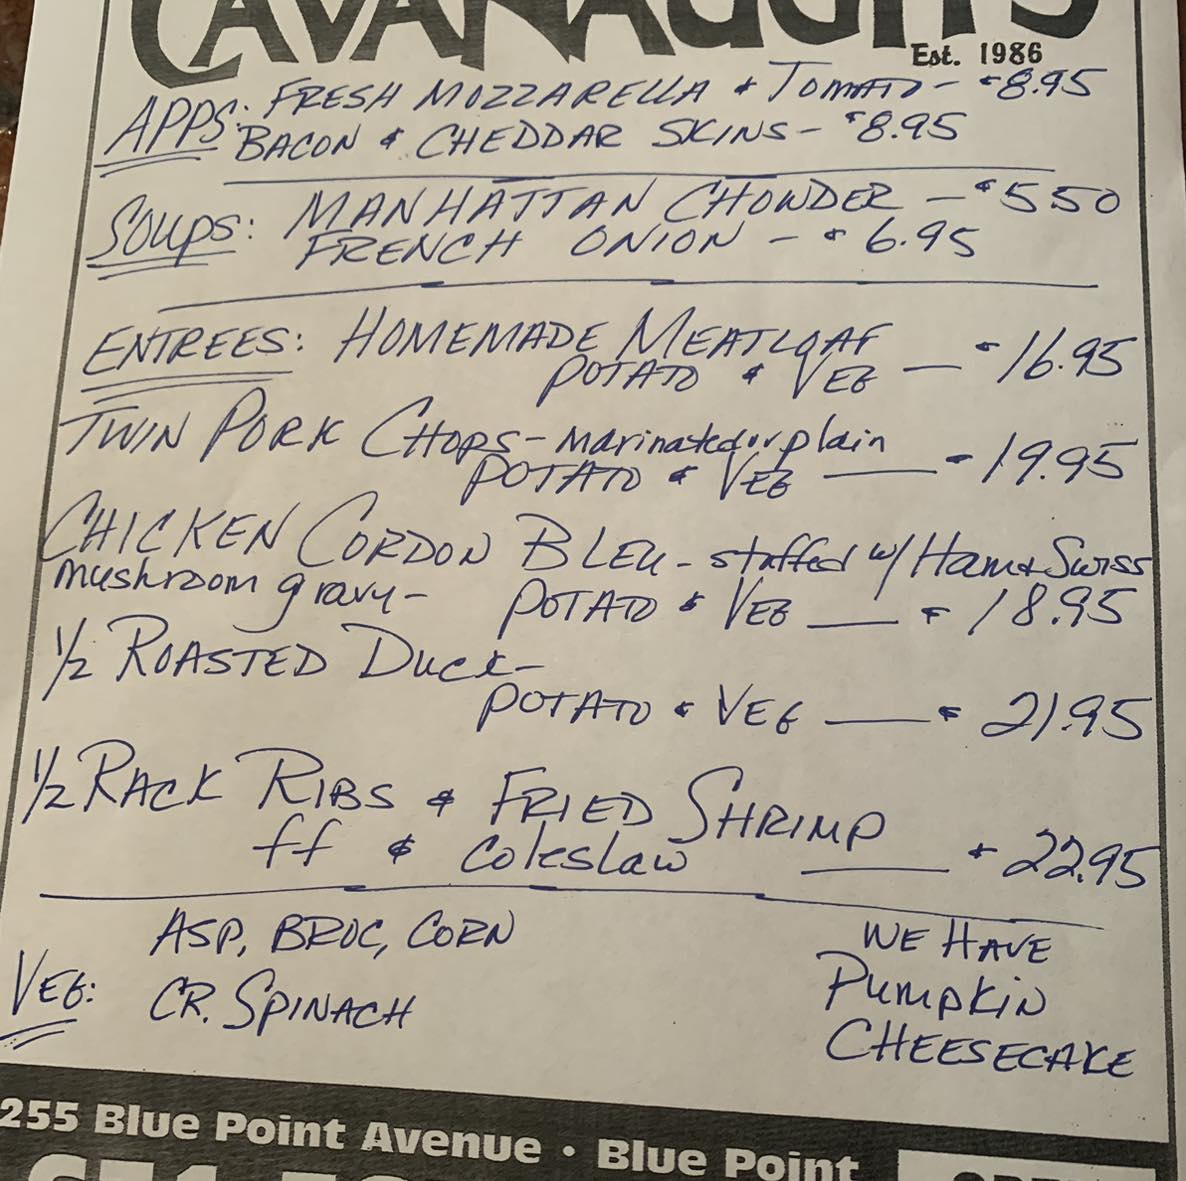 CAVANAUGH'S
Est. 1986
APPS: FRESH MOZZARELLA & TOMATO - $8.95
BACON & CHEDDAR SKINS - $8.95
SOUPS: MANHATTAN CHOWDER - $5.50
FRENCH ONION - $6.95
ENTREES: HOMEMADE MEATLOAF
POTATO & VEG — $16.95
TWIN PORK CHOPS - marinated or plain
POTATO & VEG — $19.95
CHICKEN CORDON BLEU - stuffed w/ Ham & Swiss
mushroom gravy - POTATO & VEG — $18.95
1/2 ROASTED DUCK -
POTATO & VEG — $21.95
1/2 RACK RIBS & FRIED SHRIMP
ff & coleslaw — $22.95
VEG: ASP, BROC, CORN
CR. SPINACH
WE HAVE
PUMPKIN
CHEESECAKE
255 Blue Point Avenue • Blue Point